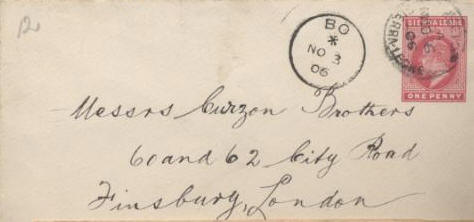 BO
NO 3
06
SIERRA LEONE
ONE PENNY
Messrs Curzon Brothers
60 and 62 City Road
Finsbury, London